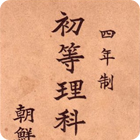 四年制
初等理科
朝鮮